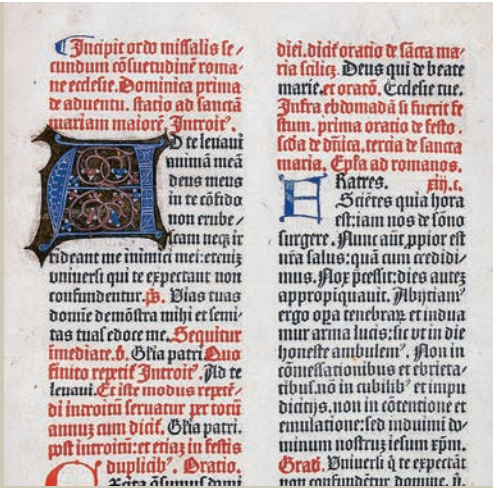 Incipit ordo missalis se/
cundum cōsuetudinē roma/
ne ecclesie. Dominica prima
de aduentu. statio ad sanctā
mariam maiorē. Introitꝰ.
AD te leuaui
animā meā
deus meus
in te cōfido
non erube/
scam neqꝫ ir
rideant me inimici mei: eteniꝫ
vniuersi qui te expectant non
confundentur. p̄s. Uias tuas
domine demōstra mihi et semi/
tas tuas edoce me. Sequitur
īmediate. ꝟ. Gl̄ia patri. Quo
finito repetit᷑ Introitꝰ. Ad te
leuaui. Et iste modus repetē/
di introitū seruatur per totū
annuꝫ cum dicit᷑. Gl̄ia patri.
post introitū: et etiaꝫ in festis
duplicibꝰ. Oratio.
diei. dicit᷑ oratio de sācta ma/
ria scilicꝫ. Deus qui de beate
marie. et oratō. Ecclesie tue.
Infra ebdomadā si fuerit fe
stum. prima oratio de festo.
scd̄a de dn̄ica, tercia de sancta
maria. Ep̄la ad romanos.
FRatres. xiij. c.
Sciētes quia hora
est: iam nos de sōno
surgere. Nunc aūt ꝓpior est
nr̄a salus: quā cum credidi/
mus. Nox p̄cessit: dies auteꝫ
appropiquauit. Abijciamꝰ
ergo oꝑa tenebraꝝ et indua
mur arma lucis: sic vt in die
honeste ambulemꝰ. Non in
cōmessationibus et ebrieta/
tibus. nō in cubilibꝰ et impu
dicitijs. non in cōtentione et
emulatione: sed induimi do/
minum nostruꝫ iesum xp̄m.
Grad̄. Uniuersi q̄ te expectāt
non confundētur domine. ꝟ.